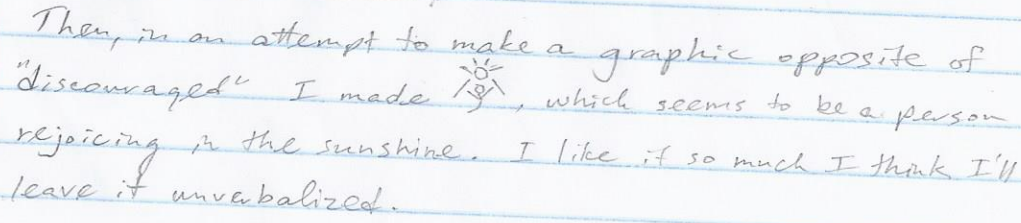 Then, in an attempt to make a graphic opposite of
"discouraged" I made , which seems to be a person
rejoicing in the sunshine. I like it so much I think I'll
leave it unverbalized.